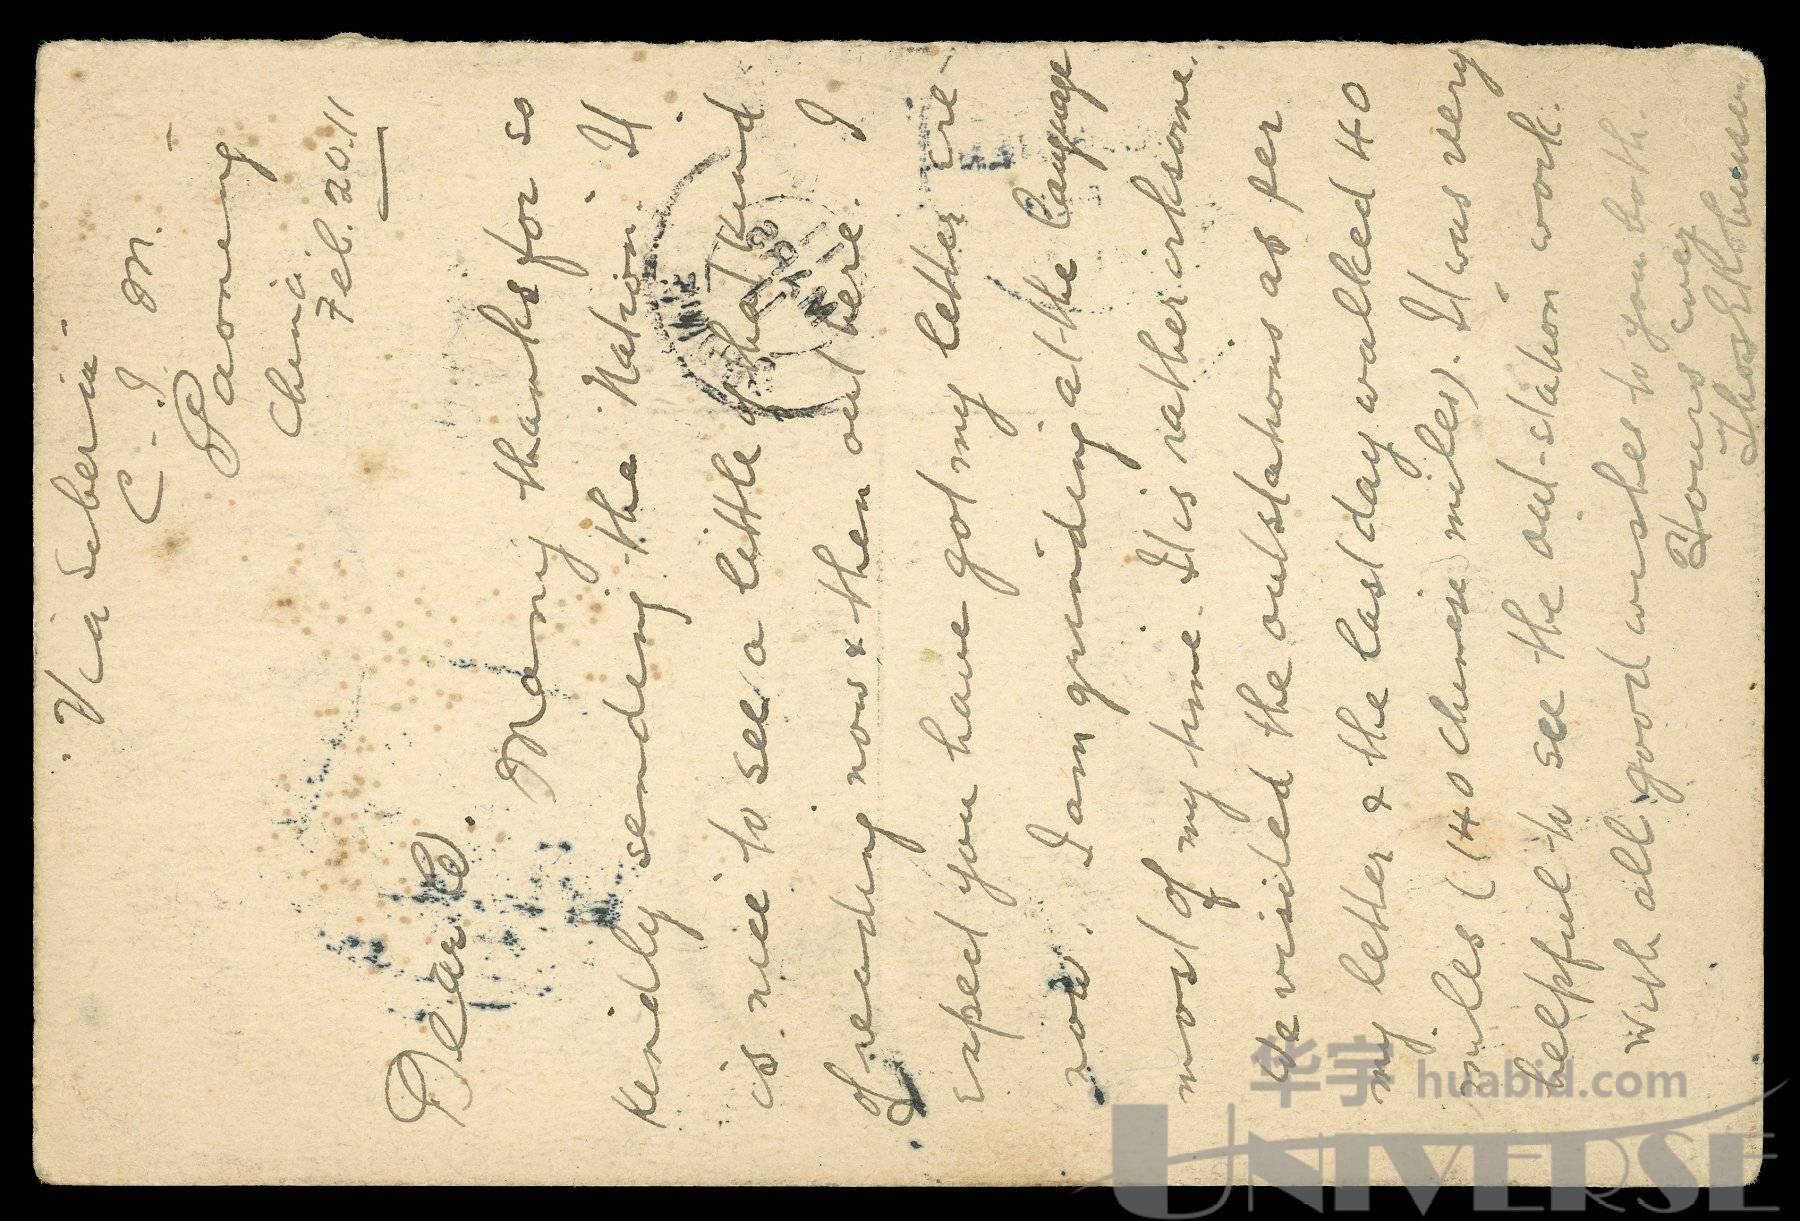 Via Siberia
C. I. M.
Paoning
China.
Feb. 20. 11
Dear
Many thanks for so
kindly sending the Nation. It
is nice to see a little of that kind
of reading now & then out here. I
expect you have got my letter ere
now. I am grinding at the language
most of my time. It is rather irksome.
We visited the outstations as per
my letter & the last day walked 40
miles (40 chinese miles). It was very
helpful to see the out-station work.
With all good wishes to you both.
Yours ever
Thos
华宇 huabid.com
UNIVERSE